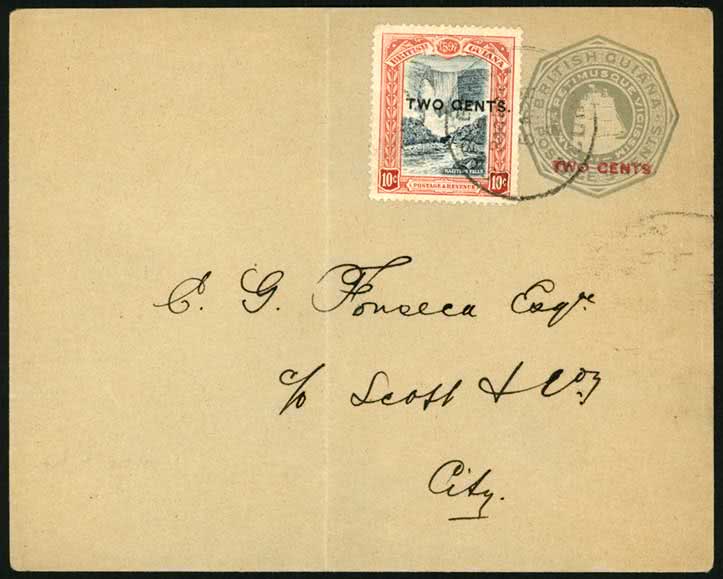 BRITISH 1897 GUIANA
TWO CENTS.
KAIETEUR FALLS
10c 10c
POSTAGE & REVENUE
BRITISH GUIANA
DAMUS PETIMUSQUE VICISSIM
TWO CENTS
C. G. Fonseca Esqr.
c/o Scott & Coy
City.